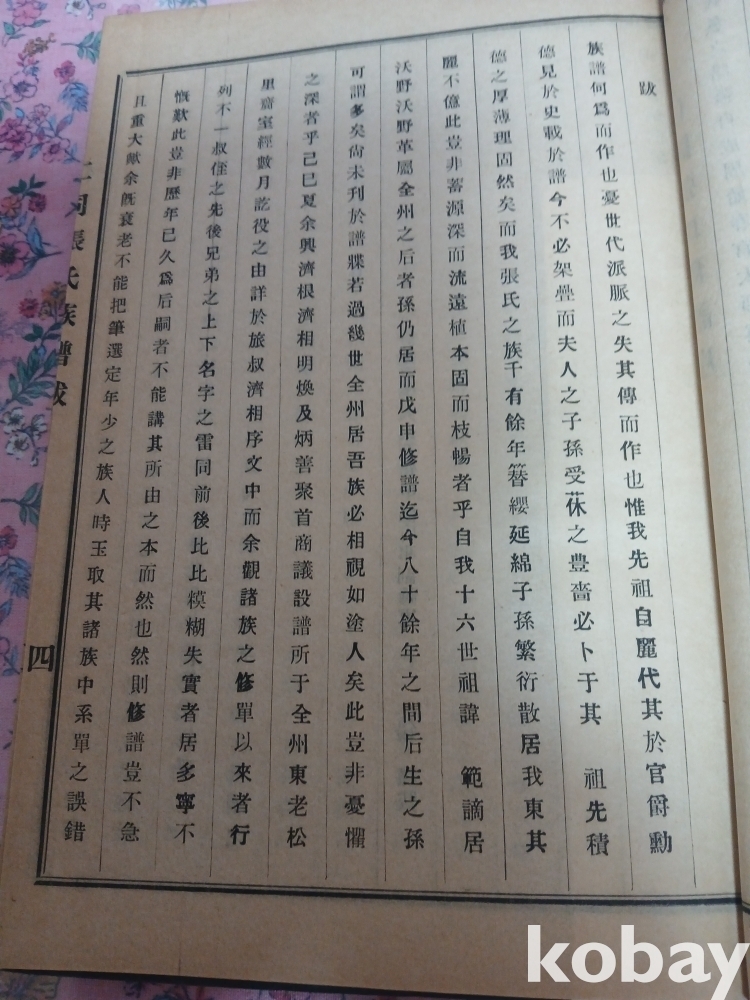 跋
族譜何爲而作也憂世代派脈之失其傳而作也惟我先祖自麗代其於官爵勳
德見於史載於譜今不必架疊而夫人之子孫受茠之豊嗇必卜于其 祖先積
德之厚薄理固然矣而我張氏之族千有餘年簪纓延綿子孫繁衍散居我東其
麗不億此豈非蓄源深而流遠植本固而枝暢者乎自我十六世祖諱 範謫居
沃野沃野革屬全州之后者孫仍居而戊申修譜迄今八十餘年之間后生之孫
可謂多矣尙未刊於譜牒若過幾世全州居吾族必相視如塗人矣此豈非憂懼
之深者乎己巳夏余興濟根濟相明煥及炳善聚首商議設譜所于全州東老松
里齋室經數月訖役之由詳於旅叔濟相序文中而余觀諸族之修單以來者行
列不一叔侄之先後兄弟之上下名字之雷同前後比比模糊失實者居多寧不
慨歎此豈非歷年已久爲后嗣者不能講其所由之本而然也然則修譜豈不急
且重大歟余旣衰老不能把筆選定年少之族人時玉取其諸族中系單之誤錯
張氏族譜跋
四
kobay